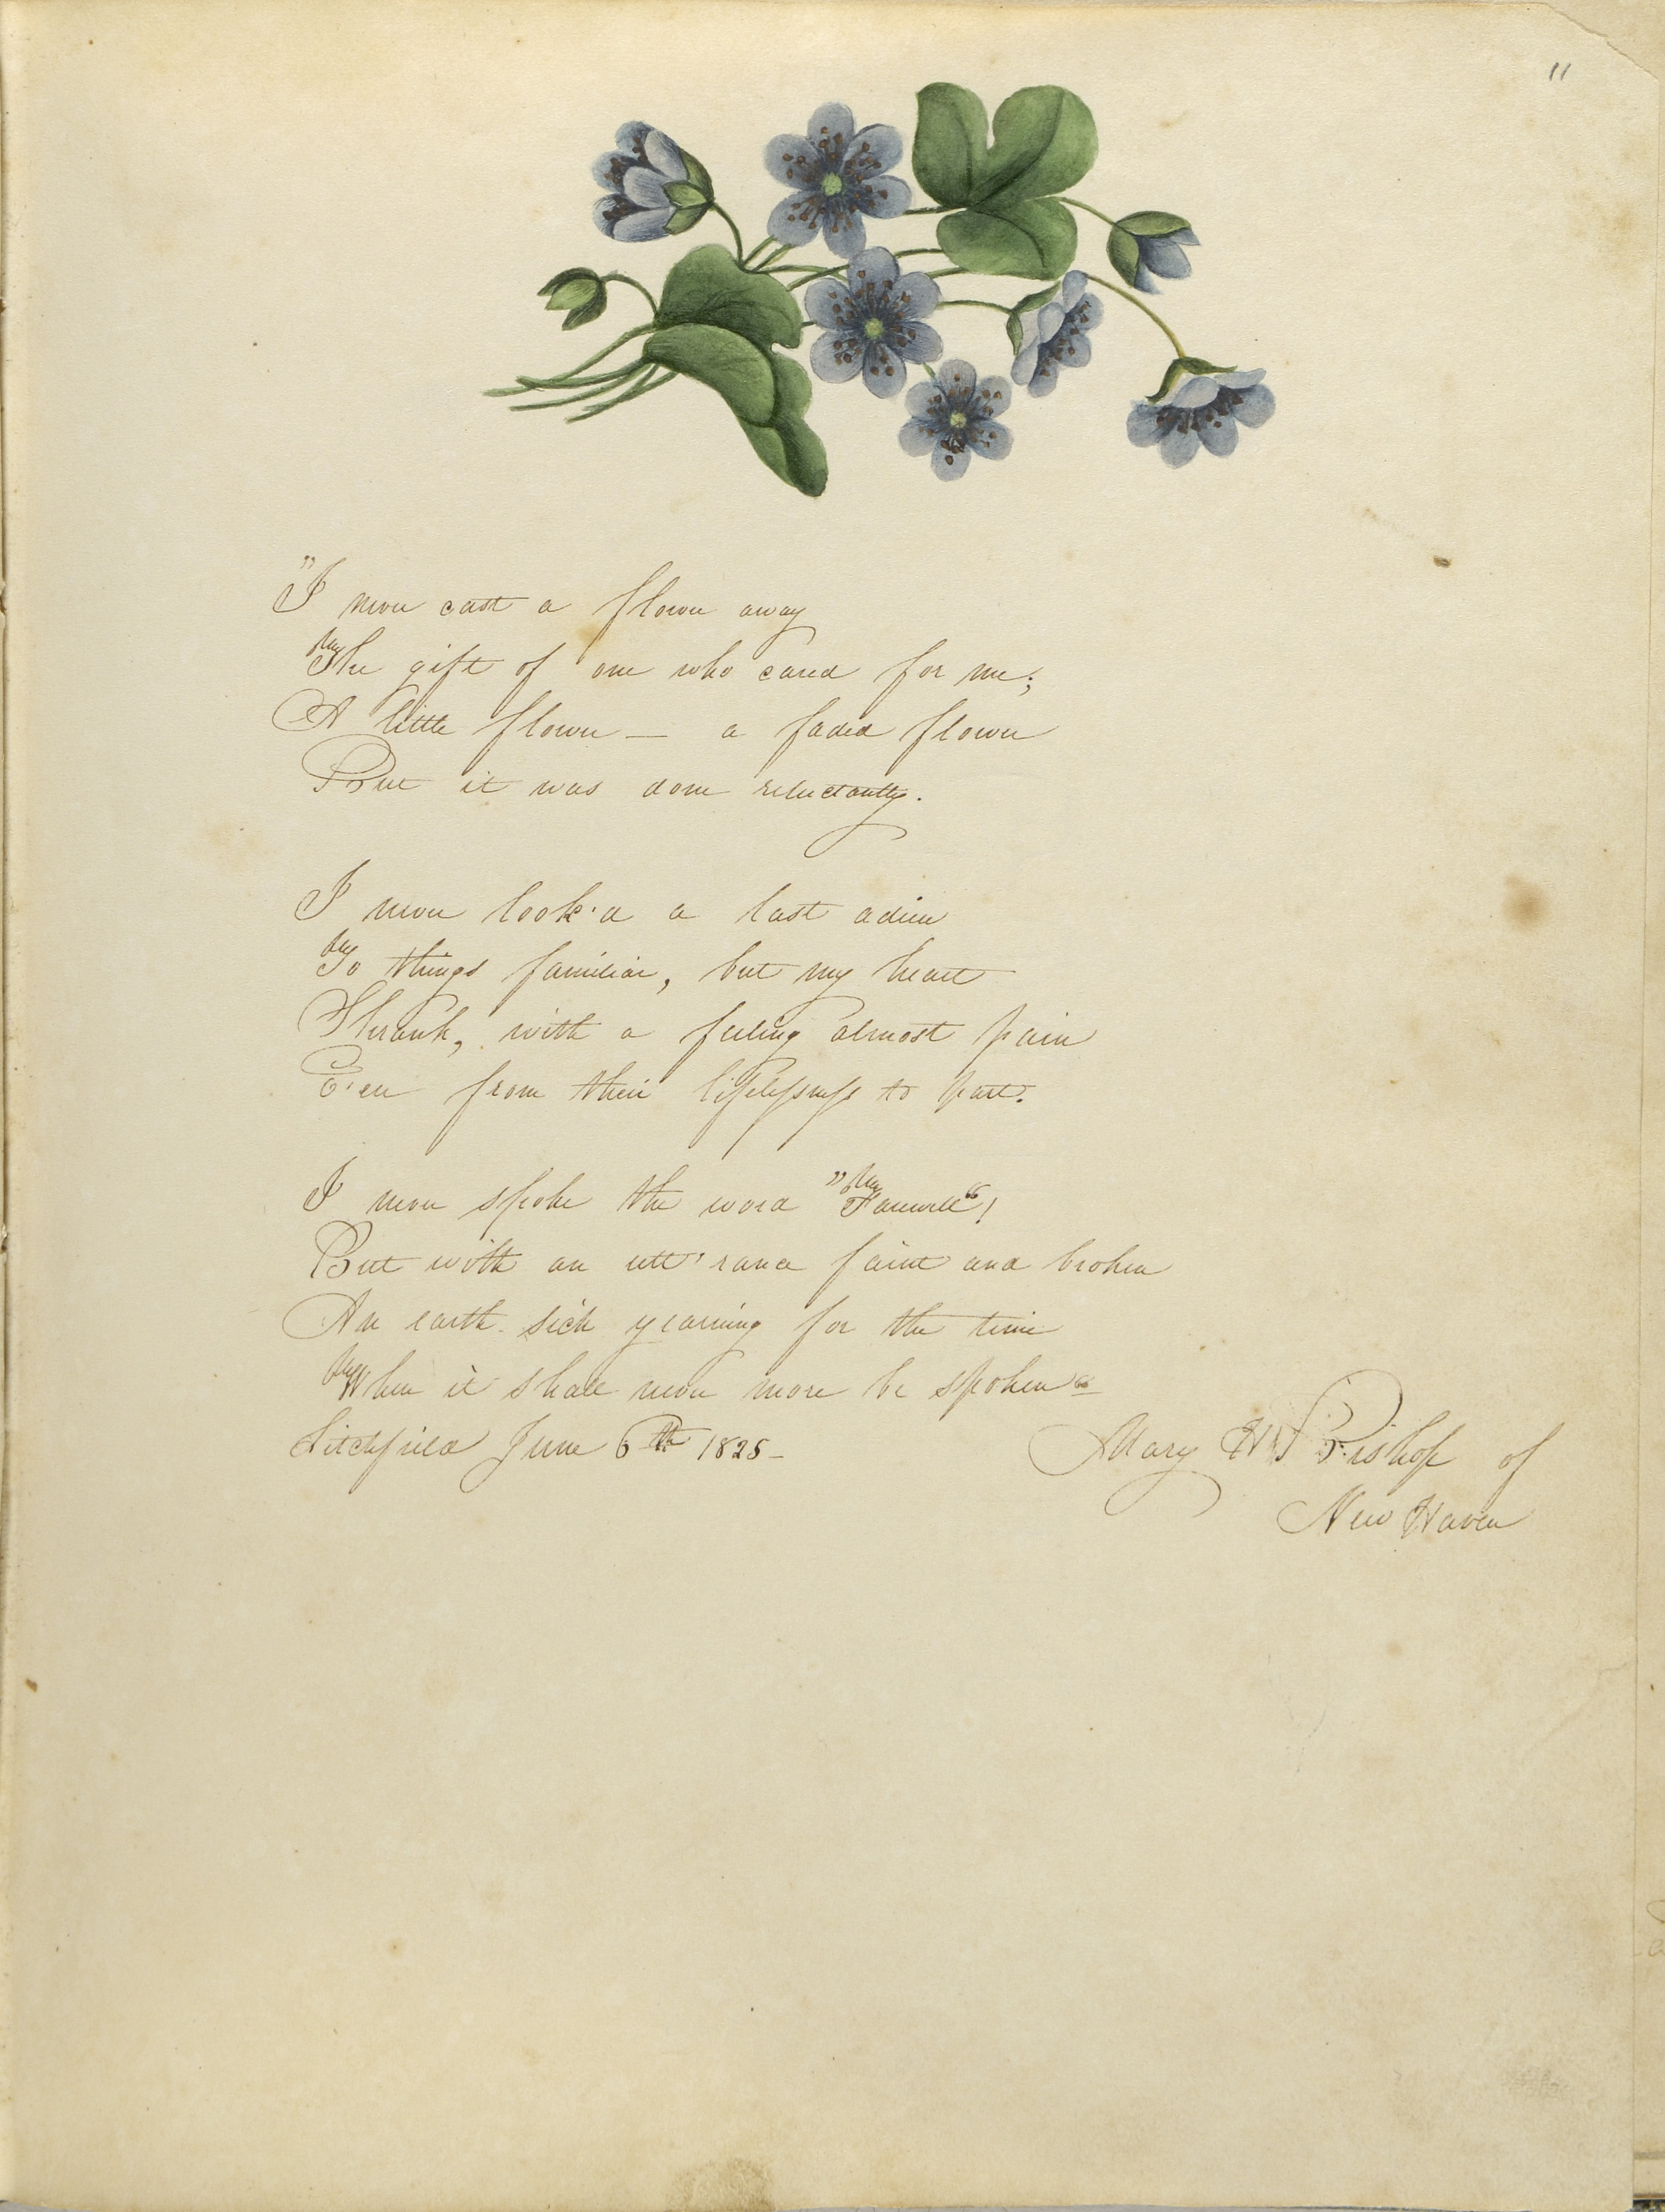 11
"I never cast a flower away
The gift of one who cared for me;
A little flower — a faded flower
But it was done reluctantly.
I never look'd a last adieu
To things familiar, but my heart
Shrank, with a feeling almost pain
E'en from their lifelessness to part.
I never spoke the word "Farewell"!
But with an utt'rance faint and broken
An earth-sick yearning for the time
When it shall never more be spoken"
Litchfield June 6th 1825-
Mary H Bishop of
New Haven